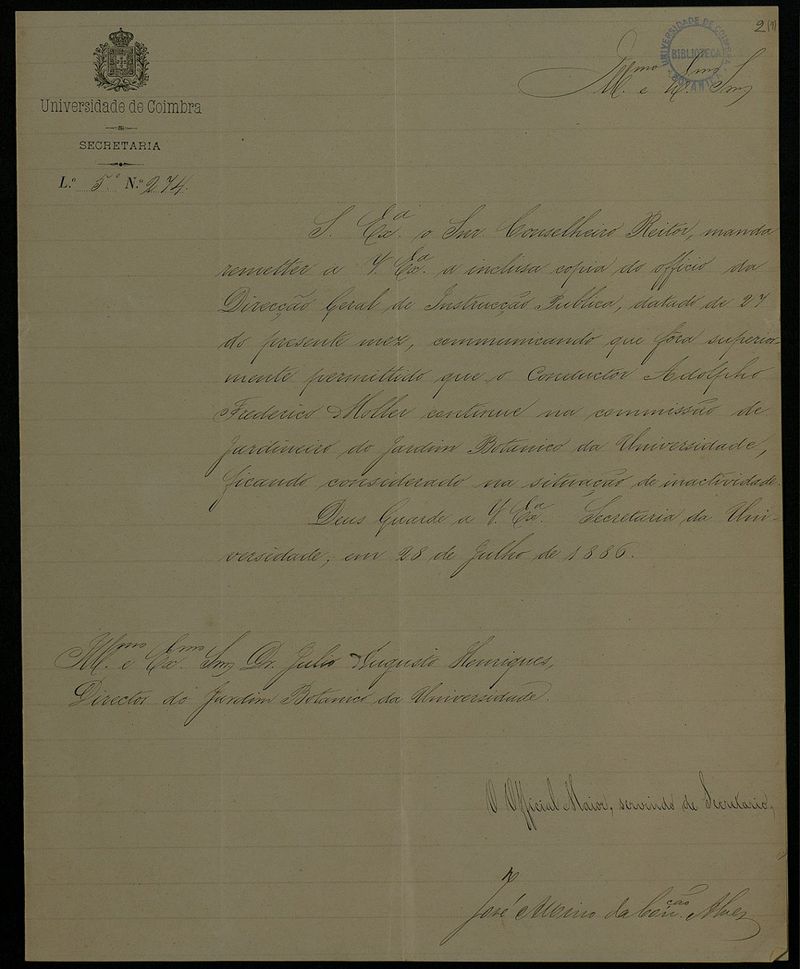 2 (1)
UNIVERSIDADE DE COIMBRA
BIBLIOTECA
BOTANICA
Universidade de Coimbra
SECRETARIA
L.º 5.º N.º 274.
Ill.mo e Ex.mo Snr.
S. Ex.ª o Snr. Conselheiro Reitor, manda
remetter a V. Ex.ª a inclusa copia do officio da
Direcção Geral de Instrucção Publica, datado de 27
do presente mez, communicando que fôra superior-
mente permittido que o Conductor Adolpho
Frederico Moller continue na commissão de
Jardineiro do Jardim Botanico da Universidade,
ficando considerado na situação de inactividade.
Deus Guarde a V. Ex.ª Secretaria da Uni-
versidade, em 28 de Julho de 1886.
Ill.mo e Ex.mo Snr. Dr. Julio Augusto Henriques,
Director do Jardim Botanico da Universidade.
O Official Maior, servindo de Secretario,
José Albino da Con.ção Alves